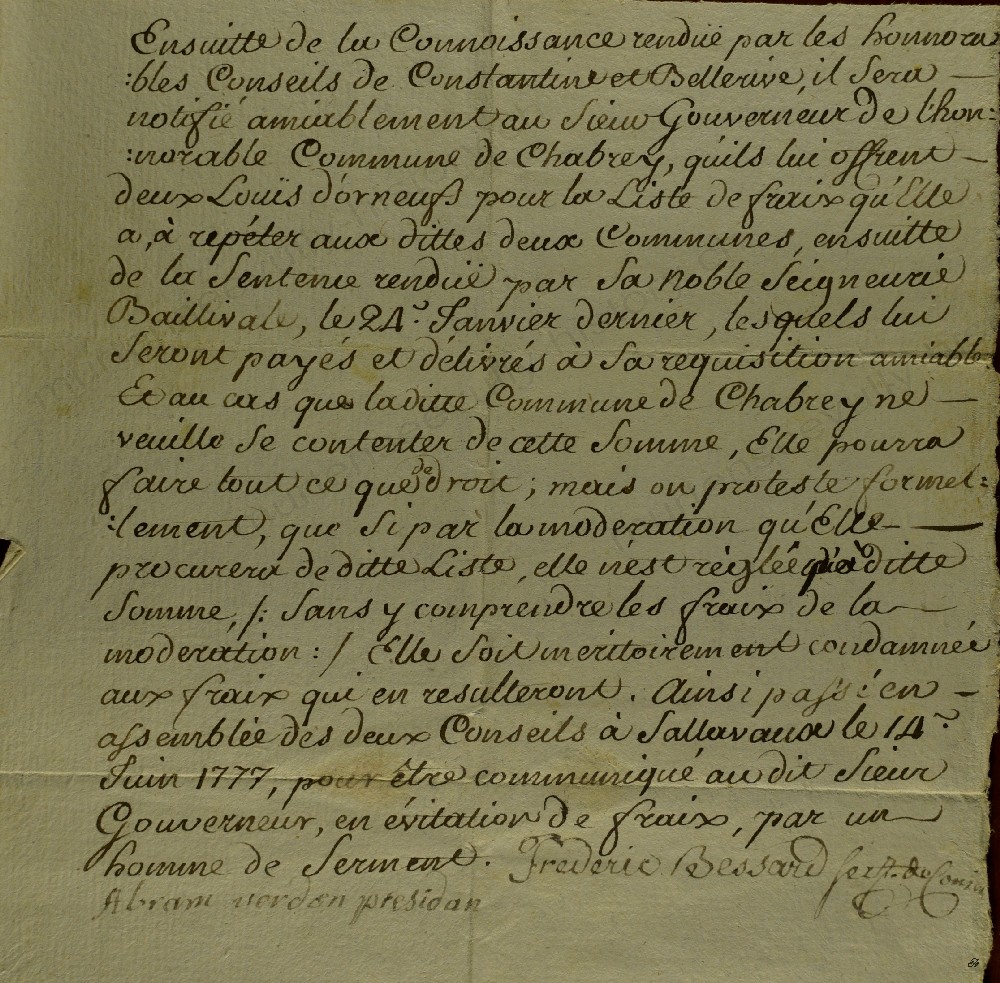 Ensuitte de la Connoissance rendüe par les honnora
:bles Conseils de Constantine et Bellerive, il Sera
notifié amiablement au Sieur Gouverneur de l'hon:
:norable Commune de Chabrey, qu'ils lui offrent
deux Louïs d'or neufs pour la Liste de fraix qu'Elle
a, à repéter aux dittes deux Communes, ensuitte
de la Sentence rendüe par Sa Noble Seigneurie
Baillivale, le 24e. Janvier dernier, lesquels lui
Seront payés et délivrés à Sa requisition amiable
Et au cas que laditte Commune de Chabrey ne
veuille Se contenter de cette Somme, Elle pourra
faire tout ce que de droit; mais on proteste formel:
:lement, que Si par la moderation qu'Elle
procurera de ditte Liste, elle n'est réglée qu'à ditte
Somme, /: Sans y comprendre les fraix de la
moderation :/ Elle Soit méritoirement condamnée
aux fraix qui en resulteront. Ainsi passé en
assemblée des deux Conseils à Sallavaux le 14e.
Juin 1777, pour être communiqué au dit Sieur
Gouverneur, en évitation de fraix, par un
homme de Serment. Frederic Bessard
Abram verdan presidan